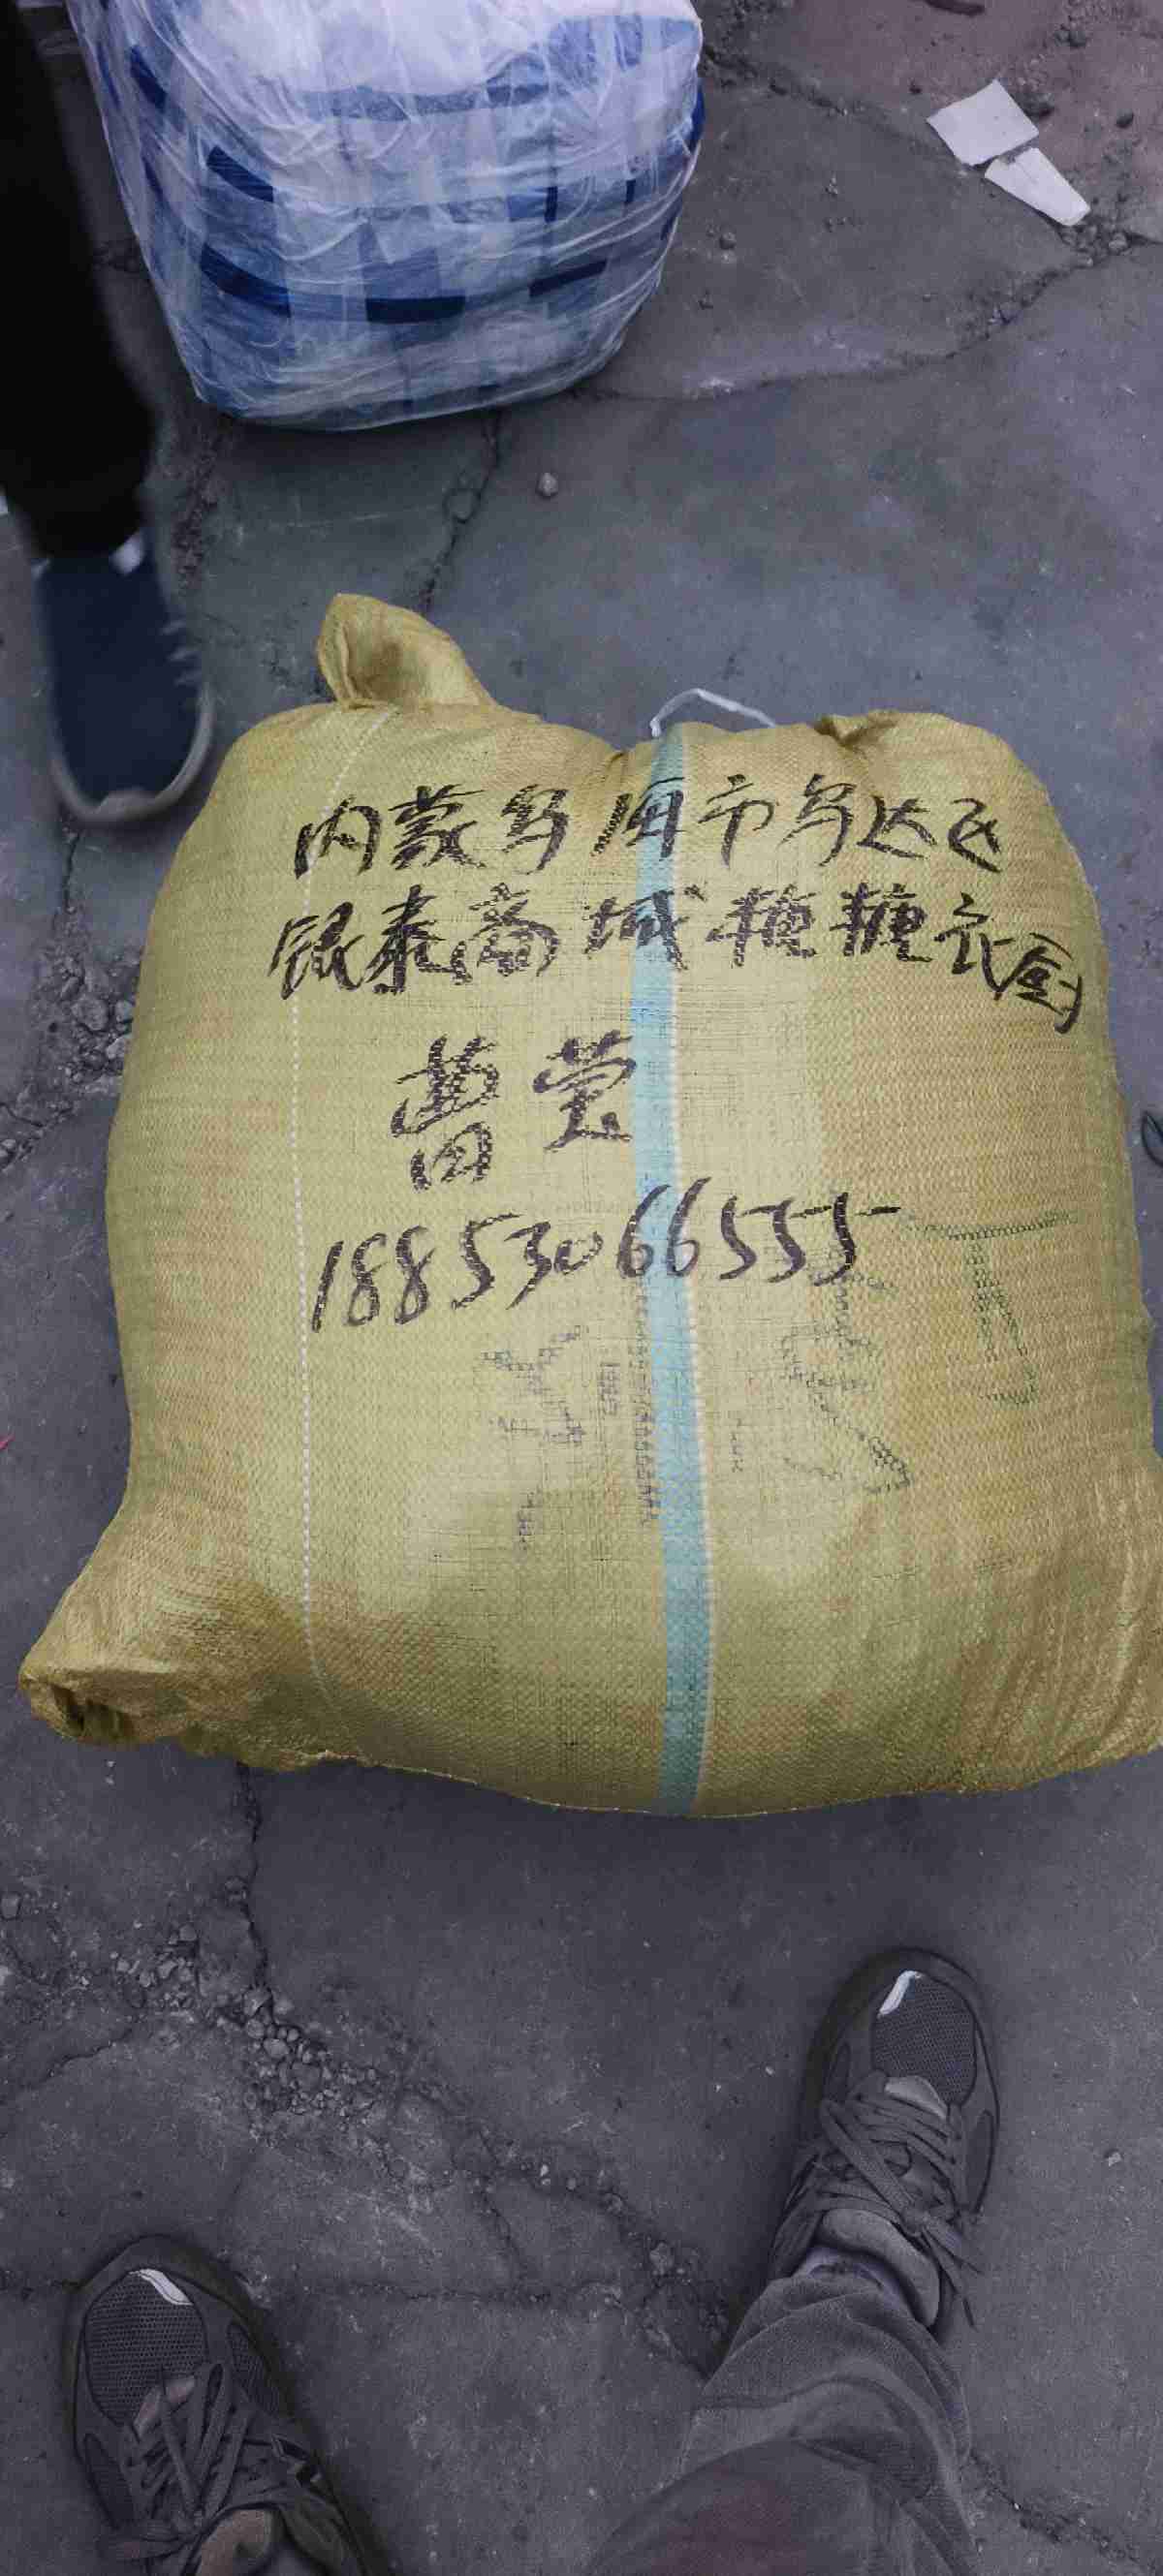 内蒙乌海市乌达区
银泰商城糖糖衣窗
曹莹
18853066555